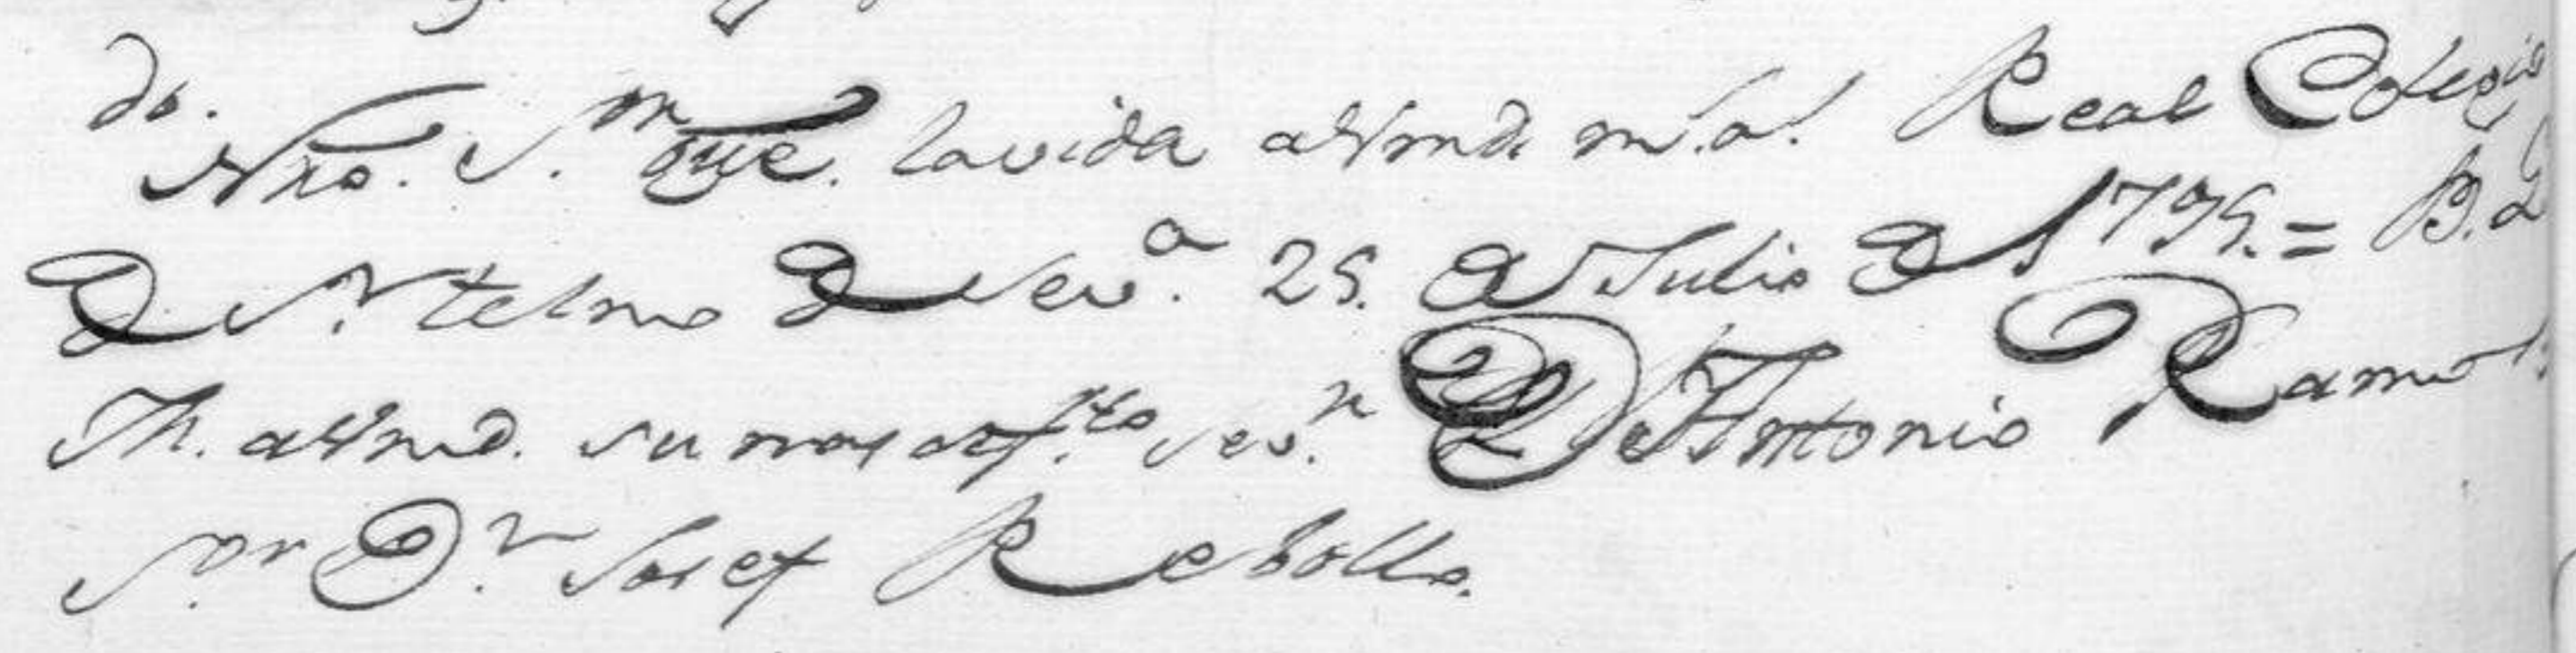 do.
Nro. S.or gue. la vida a Vmd. m.s a.s Real Colegio
de S.n telmo de Sev.a 25. de Julio de 1795. = B. L
M. a Vmd. su mas af.to ser.r Dr. Antonio Ramos
S.or D.n Josef Rebollo.